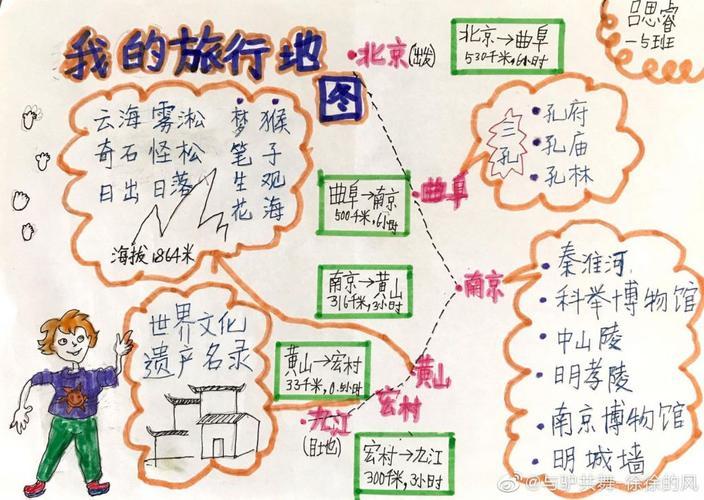 我的旅行地
图
吕思睿
一5班
北京(出发)
北京→曲阜
530千米,6小时
云海 雾淞 梦 猴
奇石 怪松 笔 子
日出 日落 生 观
花 海
海拔1864米
三孔
孔府
孔庙
孔林
曲阜→南京
500千米,6小时
曲阜
南京
南京→黄山
316千米,3小时
秦淮河
科举博物馆
中山陵
明孝陵
南京博物馆
明城墙
世界文化
遗产名录
黄山→宏村
33千米,0.5小时
黄山
宏村
九江
(目地)
宏村→九江
300千米,3小时
@与驴共舞-徐徐的风